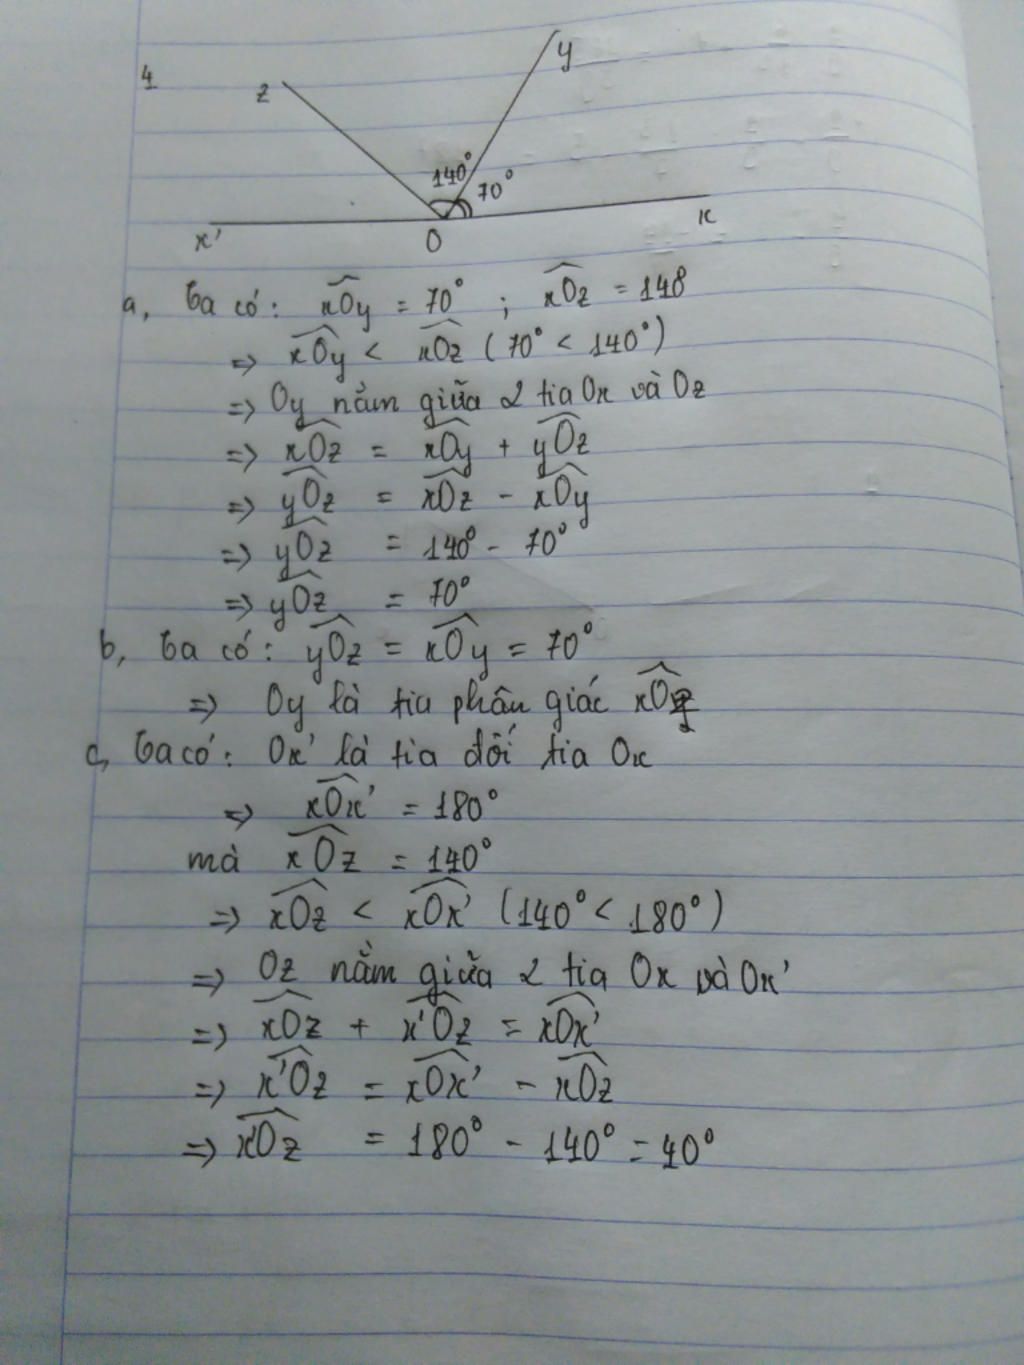 4
z
y
140°
70°
x'
O
x
a, Ta có: xOy = 70° ; xOz = 140
=> xOy < xOz (70° < 140°)
=> Oy nằm giữa 2 tia Ox và Oz
=> xOz = xOy + yOz
=> yOz = xOz - xOy
=> yOz = 140° - 70°
=> yOz = 70°
b, Ta có: yOz = xOy = 70°
=> Oy là tia phân giác xOz
c, Ta có: Ox' là tia đối tia Ox
=> xOx' = 180°
mà xOz = 140°
=> xOz < xOx' (140° < 180°)
=> Oz nằm giữa 2 tia Ox và Ox'
=> xOz + x'Oz = xOx'
=> x'Oz = xOx' - xOz
=> x'Oz = 180° - 140° = 40°